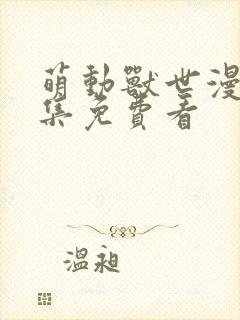 萌動獸世漫
集免費看
溫昶